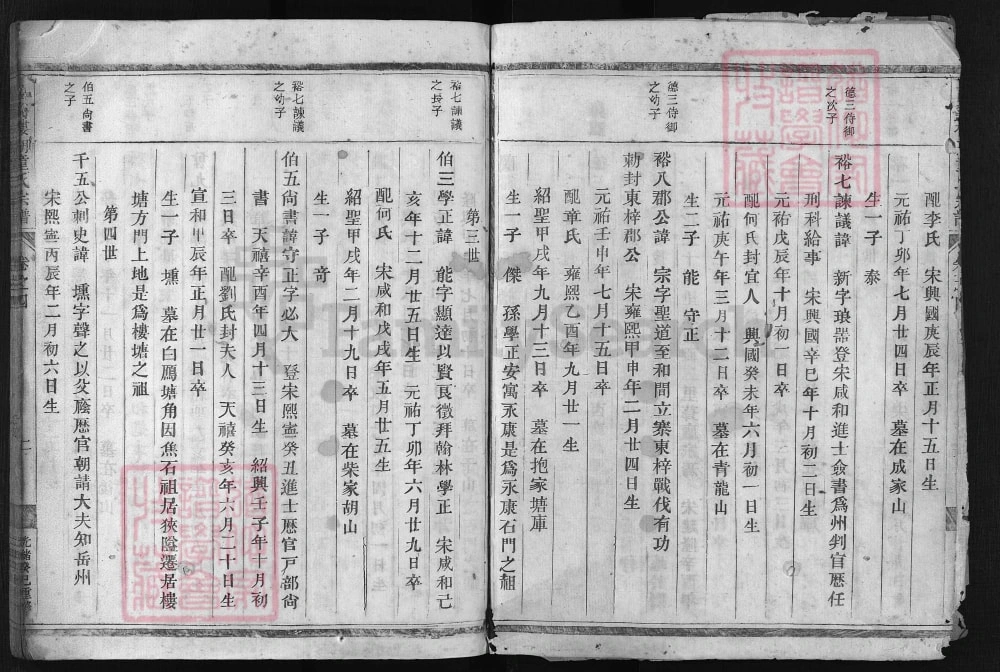 配李氏　宋興國庚辰年正月十五日生
元祐丁卯年七月廿四日卒　墓在成家山
生一子　泰
德三侍御之次子
裕七諫議諱　新字琅嚣登宋咸和進士僉書爲州判官歷任
刑科給事　宋興國辛巳年十月初二日生
元祐戊辰年十月初一日卒
配何氏封宜人　興國癸未年六月初一日生
元祐庚午年三月十二日卒　墓在青龍山
生二子　能　守正
德三侍御之幼子
裕八郡公諱　宗字聖道至和間立寨東梓戰伐有功
勅封東梓郡公　宋雍熙甲申年二月廿四日生
元祐壬申年七月十五日卒
配章氏　雍熙乙酉年九月廿一生
紹聖甲戌年九月十三日卒　墓在抱家塘庫
生一子　傑　孫學正安寓永康是爲永康石門之祖
第三世
裕七諫議之長子
伯三學正諱　能字顯達以賢良徵拜翰林學正　宋咸和己
亥年十二月廿五日生　元祐丁卯年六月廿九日卒
配何氏　宋咸和戊戌年五月廿五生
紹聖甲戌年二月十九日卒　墓在柴家胡山
生一子　竒
裕七諫議之幼子
伯五尚書諱守正字必大　登宋熙寧癸丑進士歷官戸部尙
書　天禧辛酉年四月十三日生　紹興壬子年十月初
三日卒　配劉氏封夫人　天禧癸亥年六月二十日生
宣和甲辰年正月廿一日卒
生一子　壎　墓在白鴈塘角因焦石祖居狹隘遷居樓
塘方門上地是爲樓塘之祖
第四世
伯五尙書之子
千五公刺史諱　壎字聲之以父廕歷官朝請大夫知岳州
宋熙寧丙辰年二月初六日生